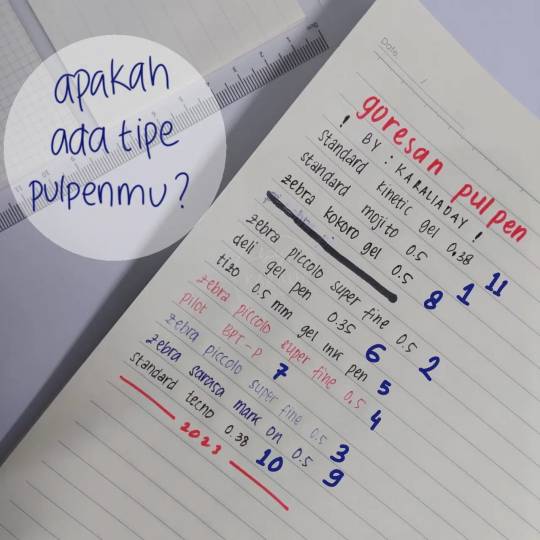 apakah
ada tipe
pulpenmu?
Date
goresan pulpen
! BY : KARALIADAY !
standard kinetic gel 0.38 11
standard mojito 0.5 1
zebra kokoro gel 0.5 8
zebra piccolo super fine 0.5 2
deli gel pen 0.35 6
tizo 0.5 mm gel ink pen 5
zebra piccolo super fine 0.5 4
pilot BPT-P 7
zebra piccolo super fine 0.5 3
zebra sarasa mark on 0.5 9
standard tecno 0.38 10
2023